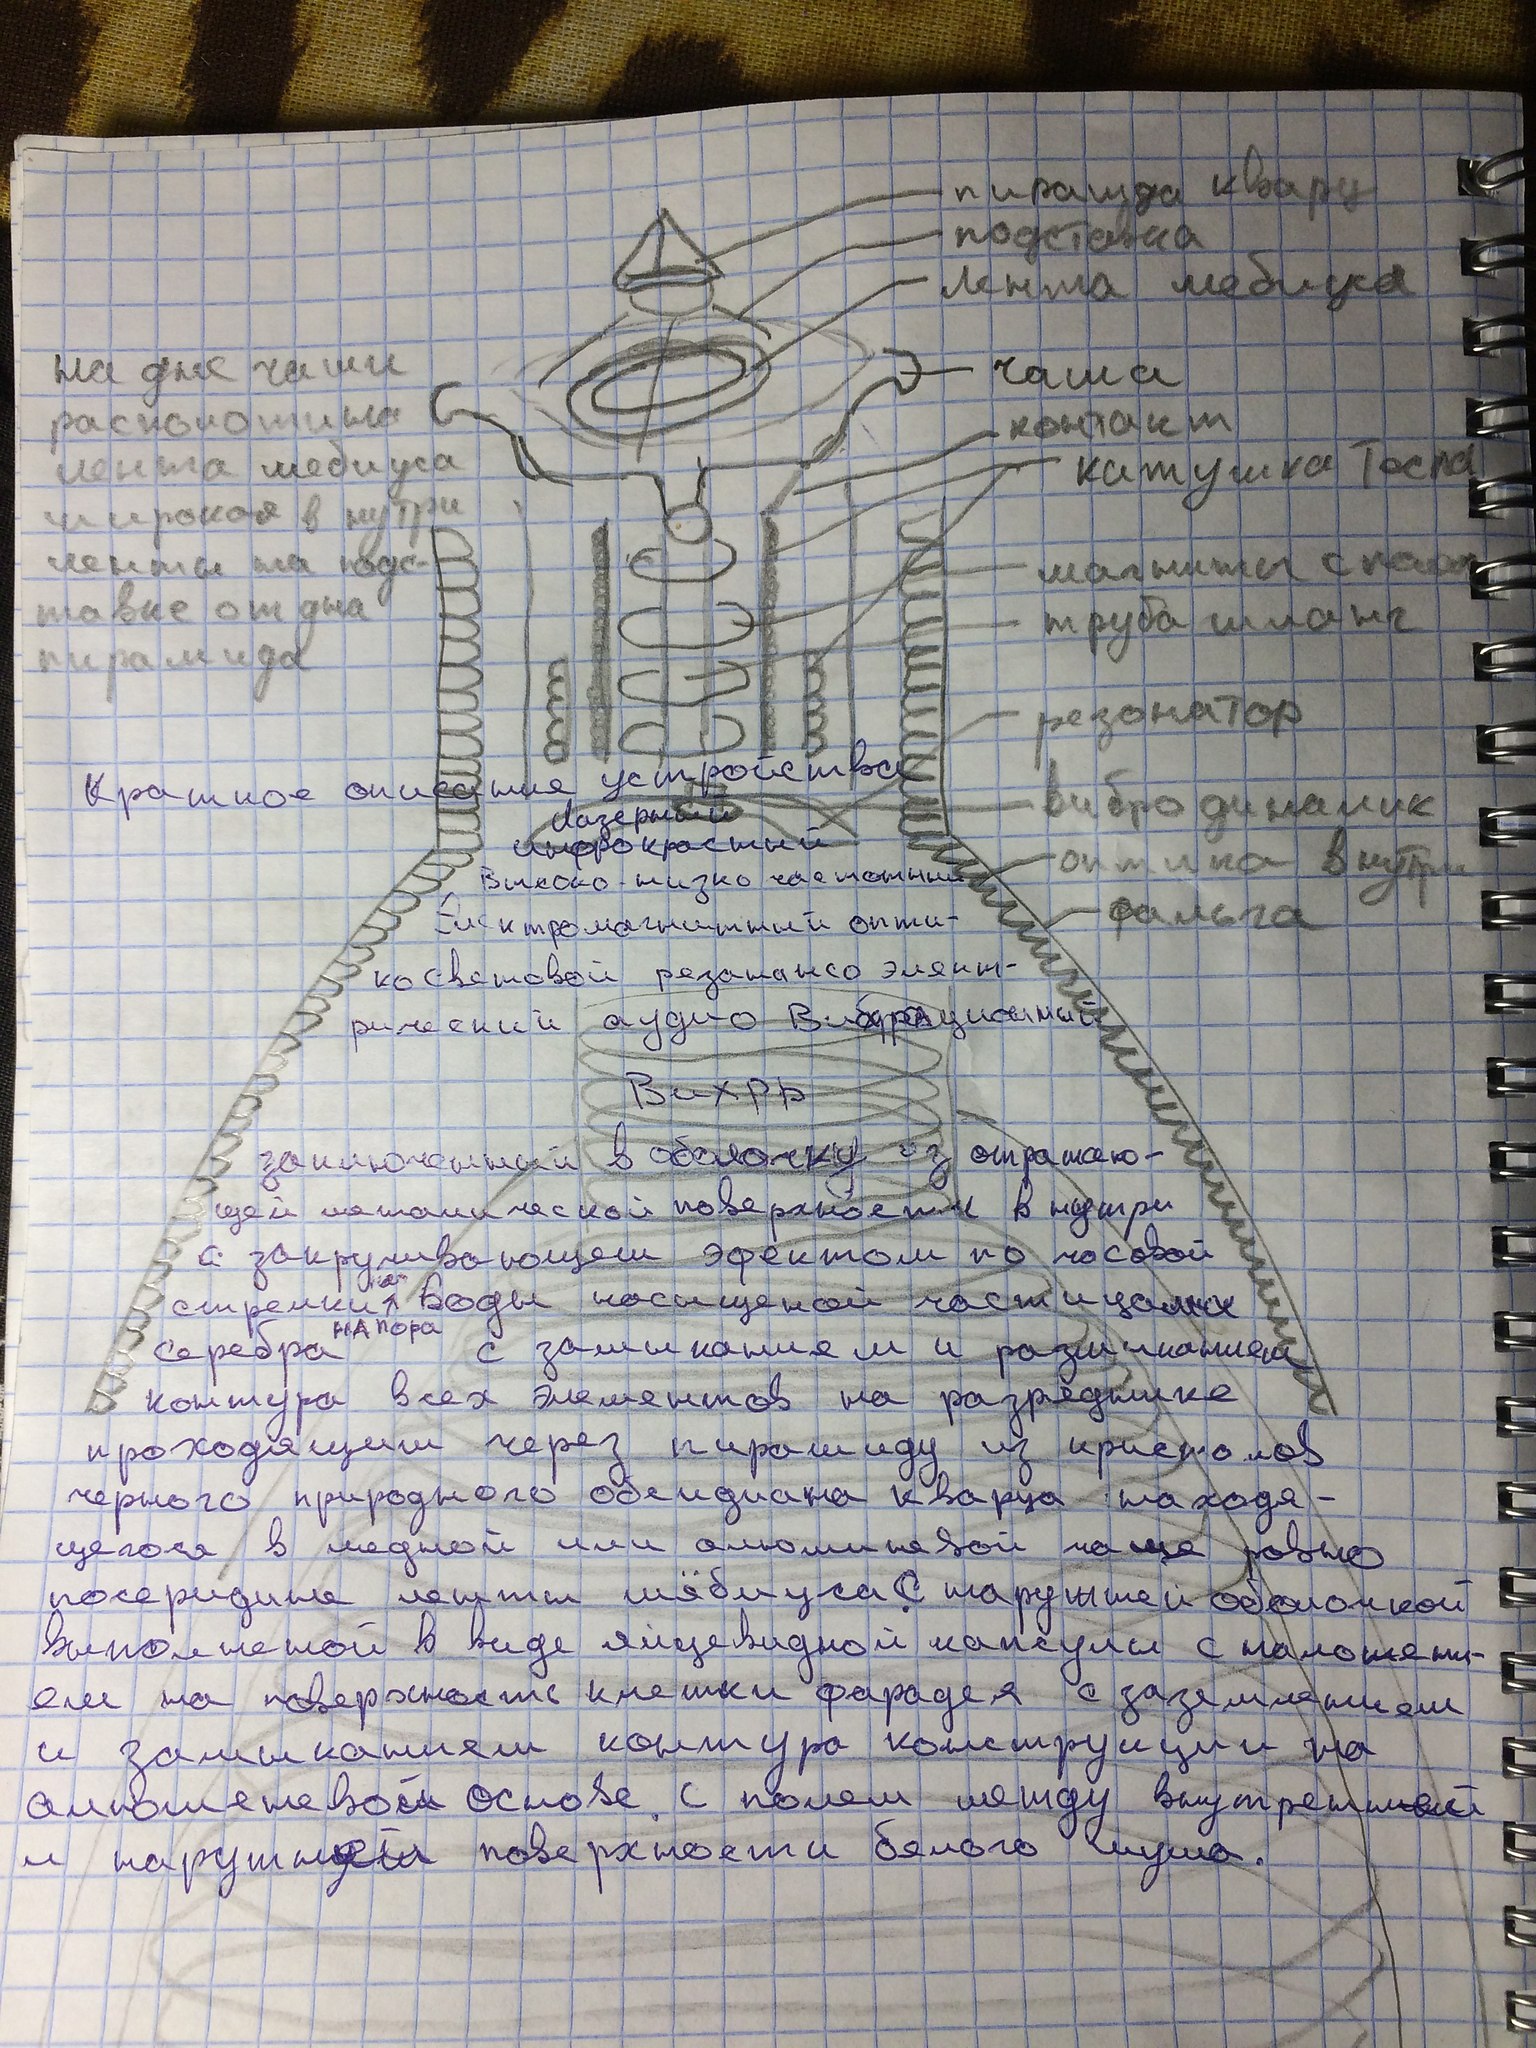 пирамида кварц
подставка
Лента мебиуса
чаша
контакт
катушка Тесла
магниты
труба шланг
резонатор
вибродинамик
оптика внутри
фальга
на дне чаши
расположина
лента мебиуса
широкая в нутри
ленты на подс-
тавке от дна
пирамида
Краткое описание устройства
Лазерный
инфрокрастный
Высоко-низко частотный
Електромагнитный опти-
косветовой резанансо элект-
рический аудио Вибрационный
Вихрь
заключенный в оболочку из отражаю-
щей металической поверхности в нутри
с закручивающем эфектом по часовой
стрелки воды насыщеной частицами
серебра напора с замыканием и размыканием
контура всех элементов на разряднике
проходящим через пирамиду из кристалов
черного природного обсидиана кварца находя-
щегося в медной или алюминевой чаше ровно
посередине ленты мёбиуса С наружней оболочкой
выполненой в виде яйцевидной капсулы с наложени-
ем на поверхность клетки фарадея с заземлением
и замыканием контура конструкции на
алюменевой основе. с полем между внутренней
и наружней поверхности белого шума.